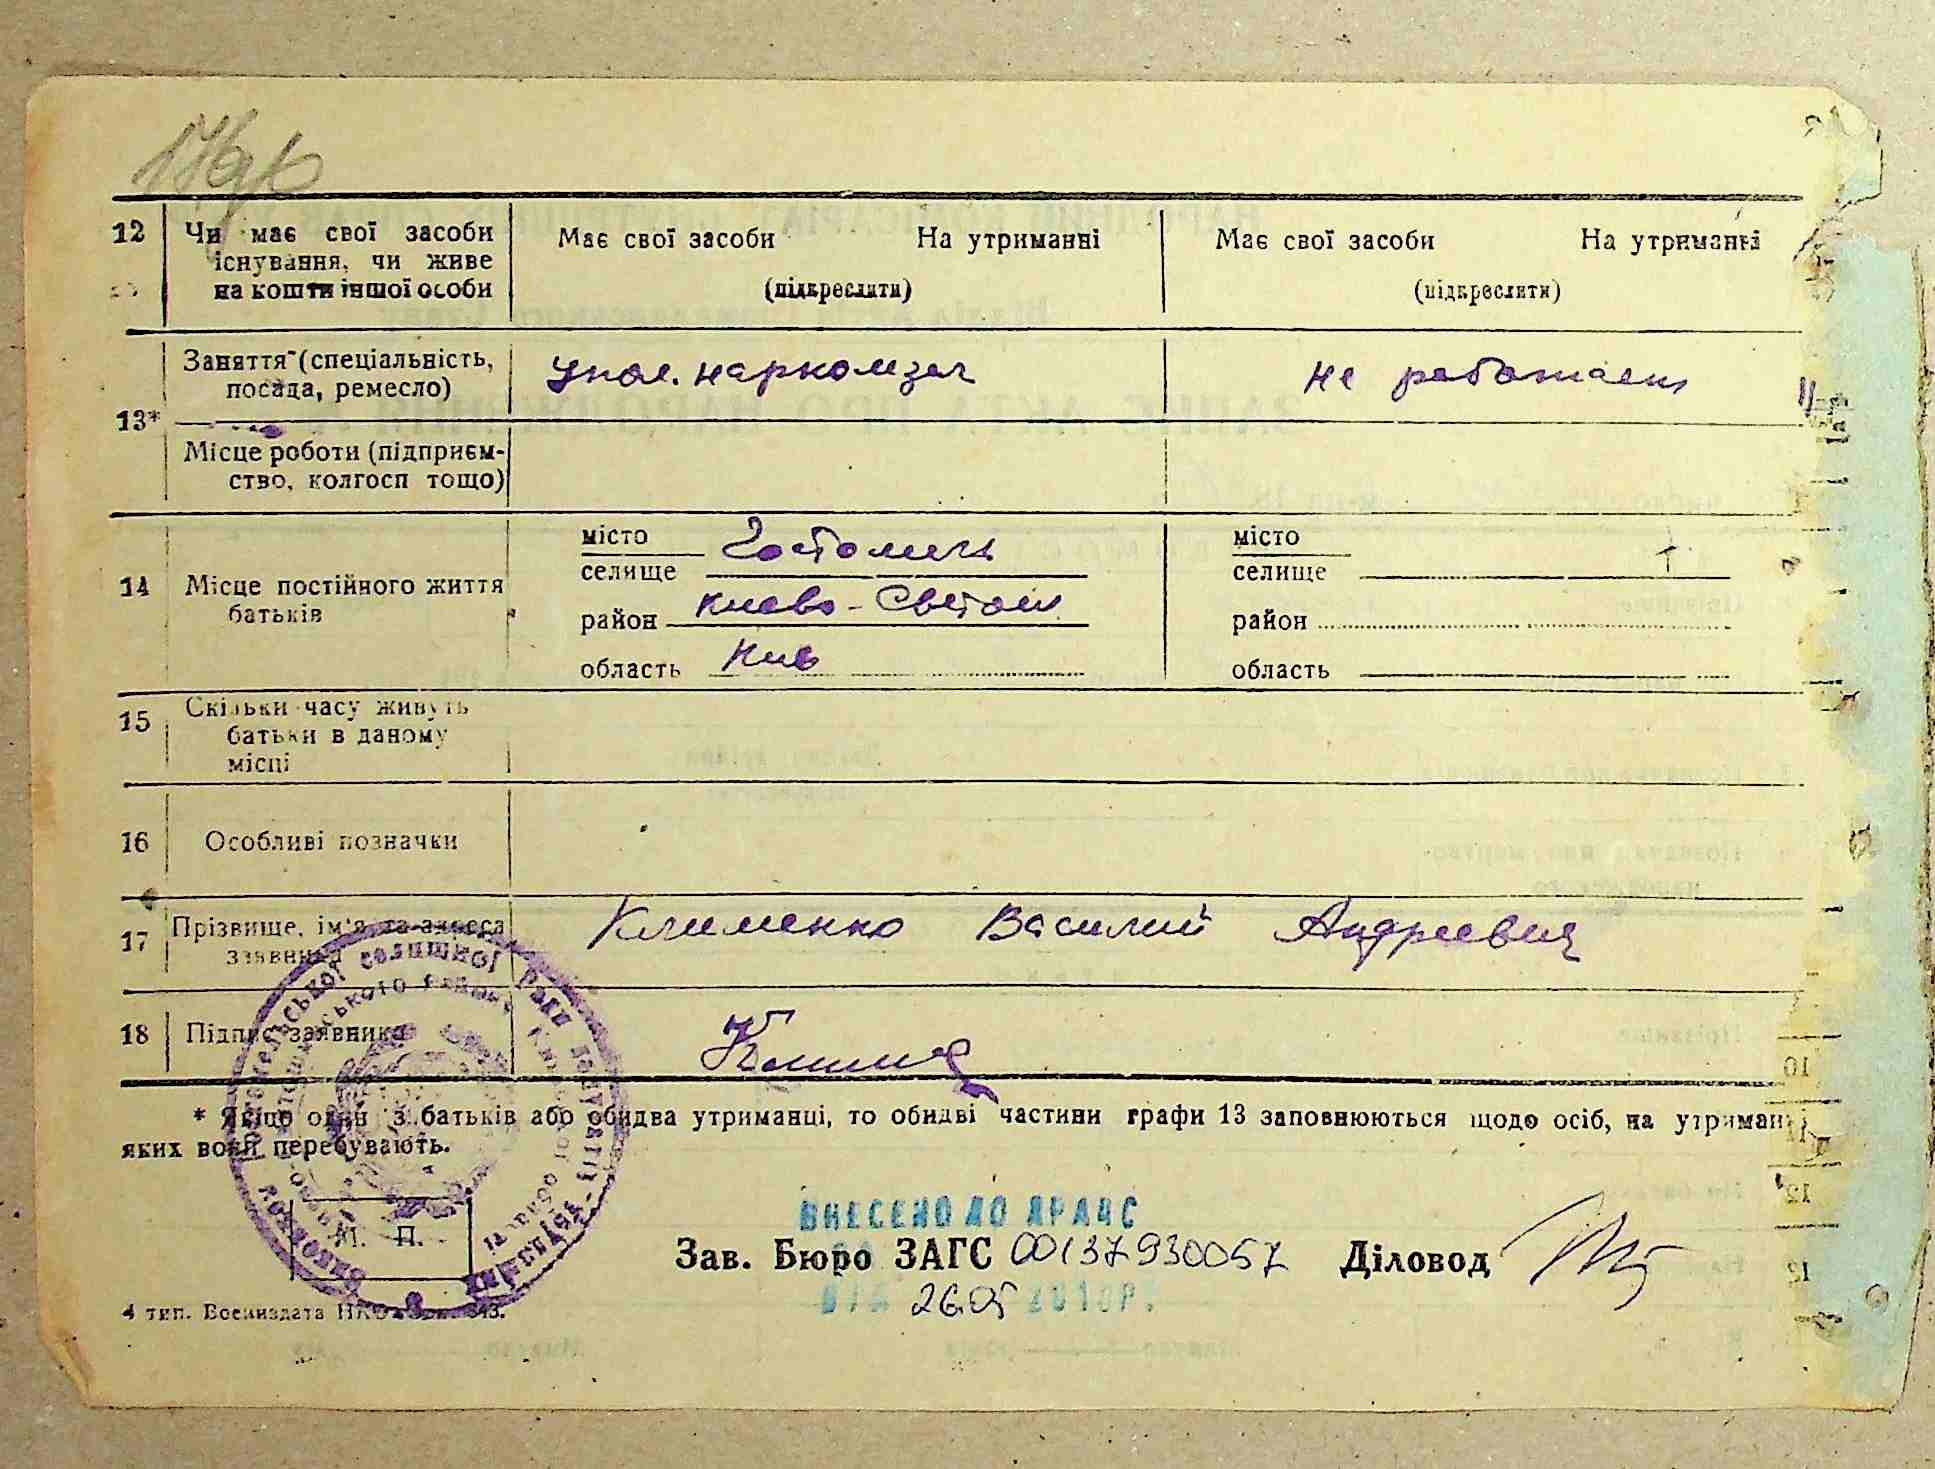 12 Чи має свої засоби існування, чи живе на кошти іншої особи
Має свої засоби На утриманні
(підкреслити)
Має свої засоби На утриманні
(підкреслити)
13* Заняття (спеціальність, посада, ремесло)
упол. наркомзаг
не работает
Місце роботи (підприєм-
ство, колгосп тощо)
14 Місце постійного життя батьків
місто
селище Гостомель
район Киево-Святош
область Киев
місто
селище
район
область
15 Скільки часу живуть батьки в даному місці
16 Особливі позначки
17 Прізвище, ім'я та адреса заявника
Клименко Василий Андреевич
18 Підпис заявника
* Якщо один з батьків або обидва утриманці, то обидві частини графи 13 заповнюються щодо осіб, на утриманні
яких вони перебувають.
М. П.
ВНЕСЕНО ДО ДРАЦС
Зав. Бюро ЗАГС 00137930057 Діловод
26.05
4 тип. Воениздата